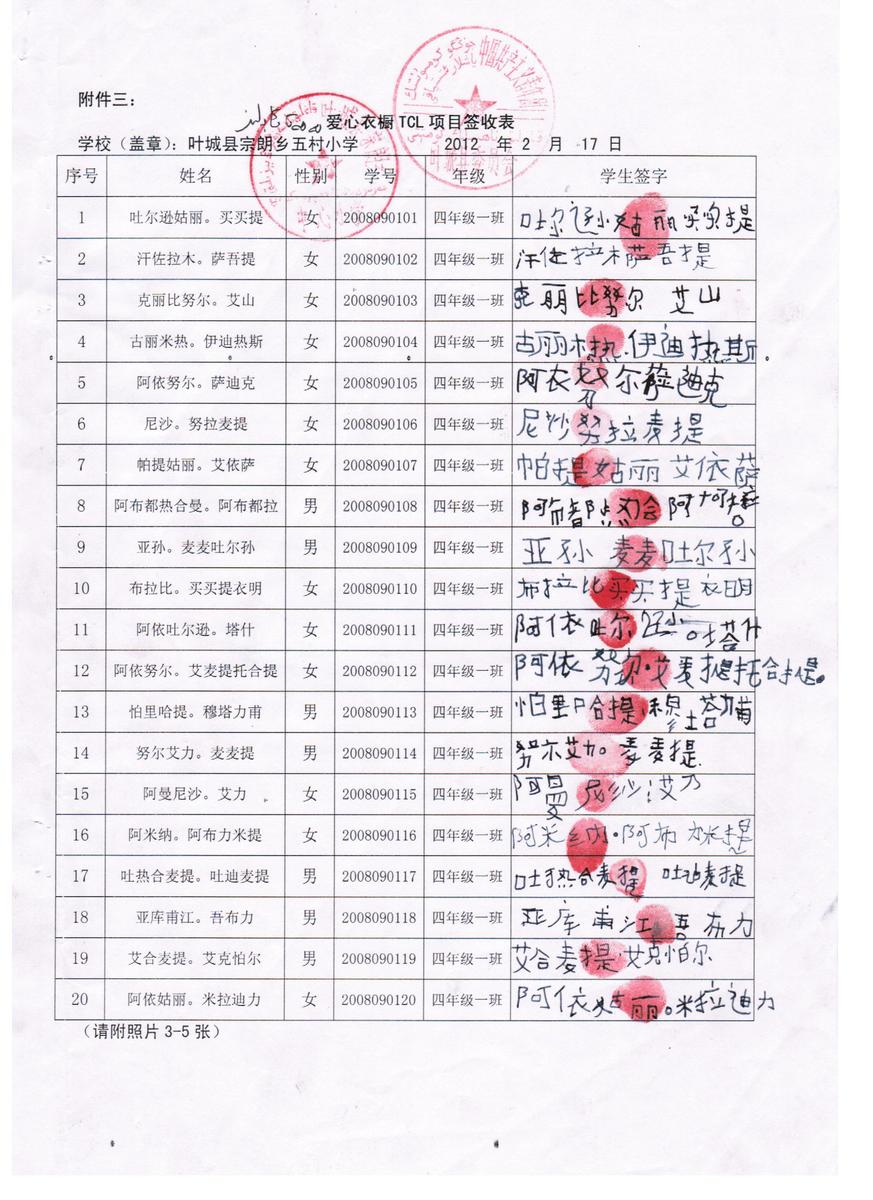 附件三：
爱心衣橱 TCL 项目签收表
学校（盖章）：叶城县宗朗乡五村小学 2012 年 2 月 17 日
序号 姓名 性别 学号 年级 学生签字
1 吐尔逊姑丽。买买提 女 2008090101 四年级一班 吐尔逊姑丽买买提
2 汗佐拉木。萨吾提 女 2008090102 四年级一班 汗佐拉木萨吾提
3 克丽比努尔。艾山 女 2008090103 四年级一班 克丽比努尔 艾山
4 古丽米热。伊迪热斯 女 2008090104 四年级一班 古丽米热.伊迪热斯.
5 阿依努尔。萨迪克 女 2008090105 四年级一班 阿衣努尔萨迪克
6 尼沙。努拉麦提 女 2008090106 四年级一班 尼沙努拉麦提
7 帕提姑丽。艾依萨 女 2008090107 四年级一班 帕提姑丽艾依萨
8 阿布都热合曼。阿布都拉 男 2008090108 四年级一班
9 亚孙。麦麦吐尔孙 男 2008090109 四年级一班 亚孙 麦麦吐尔孙
10 布拉比。买买提衣明 女 2008090110 四年级一班 布拉比买买提衣明
11 阿依吐尔逊。塔什 女 2008090111 四年级一班 阿依吐尔逊。塔什
12 阿依努尔。艾麦提托合提 女 2008090112 四年级一班 阿依努尔.艾麦提托合提。
13 怕里哈提。穆塔力甫 男 2008090113 四年级一班
14 努尔艾力。麦麦提 男 2008090114 四年级一班 努尔艾力。麦麦提
15 阿曼尼沙。艾力 女 2008090115 四年级一班 阿曼尼沙艾力
16 阿米纳。阿布力米提 女 2008090116 四年级一班 阿米纳.阿布力米提
17 吐热合麦提。吐迪麦提 男 2008090117 四年级一班 吐热合麦提 吐迪麦提
18 亚库甫江。吾布力 男 2008090118 四年级一班 亚库甫江吾布力
19 艾合麦提。艾克怕尔 男 2008090119 四年级一班 艾合麦提.艾克怕尔
20 阿依姑丽。米拉迪力 女 2008090120 四年级一班 阿依姑丽。米拉迪力
（请附照片 3-5 张）